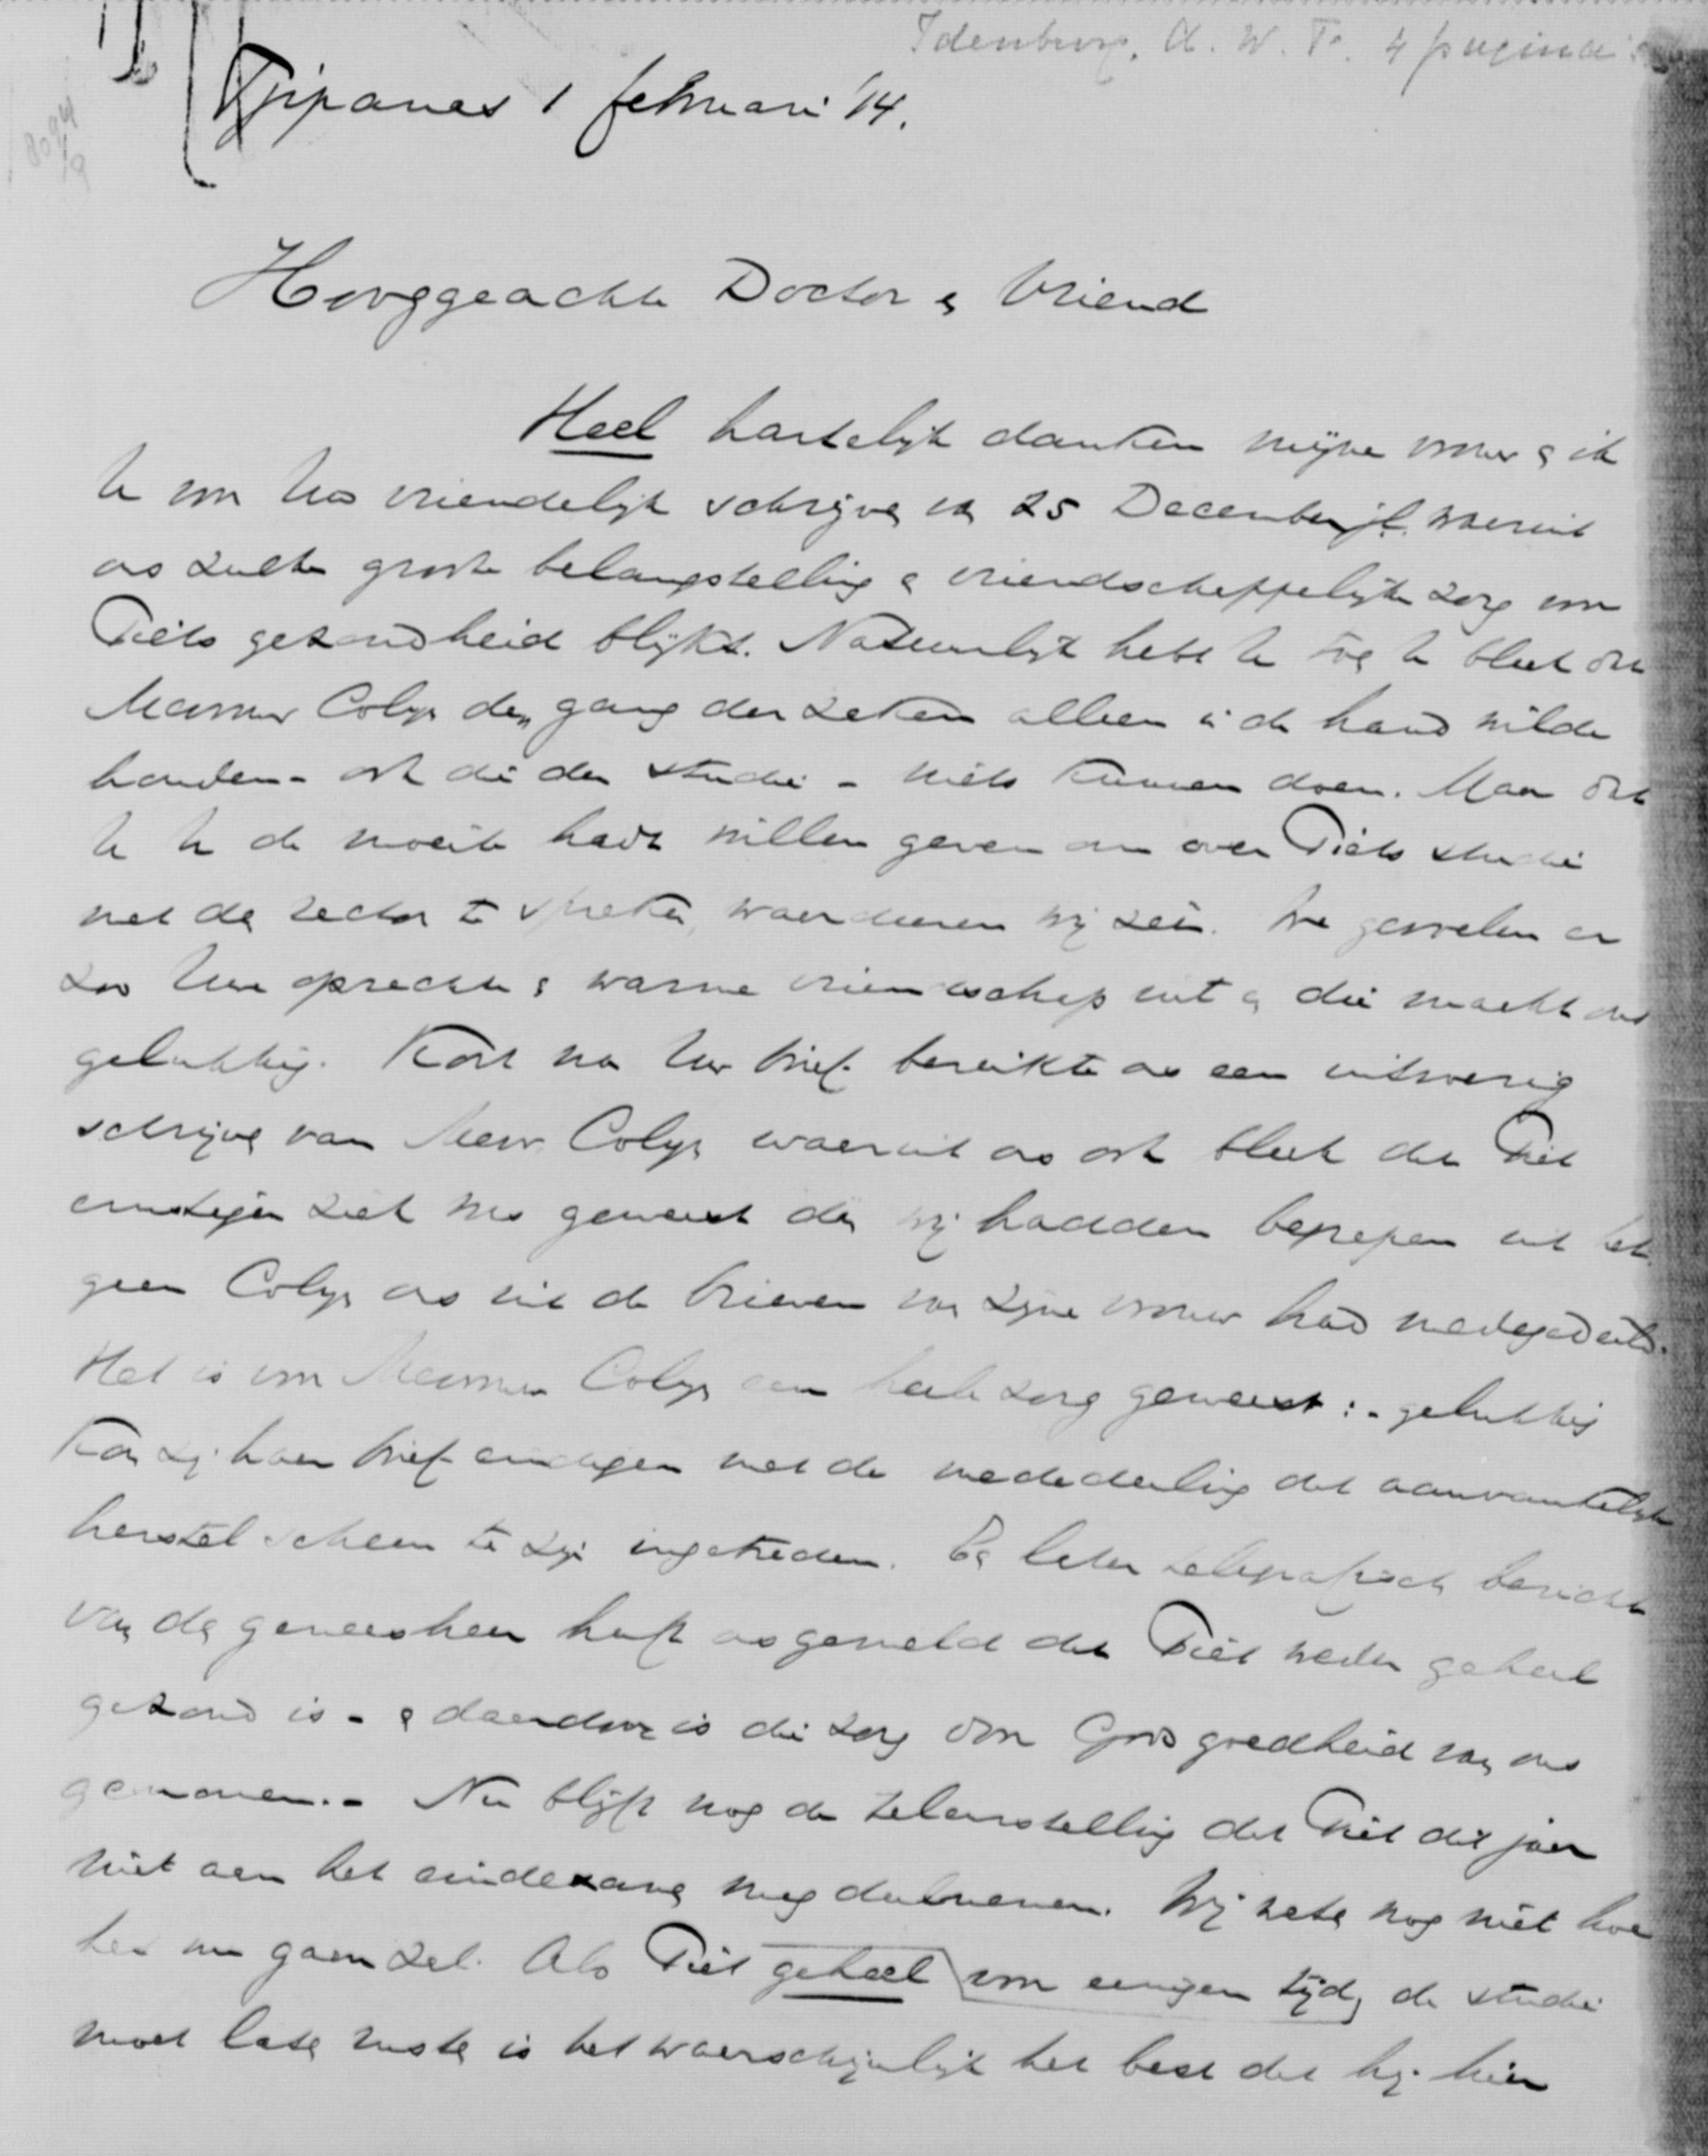 Idenburg, A. W. F. 4 pagina's
8094/9
Tjipanas 1 februari '14.
Hooggeachte Doctor & Vriend
Heel hartelijk danken mijne vrouw & ik
U voor Uw vriendelijk schrijven van 25 December jl. waaruit
ons zulke groote belangstelling & vriendschappelijke zorg voor
Piets gezondheid blijkt. Natuurlijk hebt U toen U bleek dat
Mevrouw Colijn den gang der zaken alleen in de hand wilde
houden - ook die der studie - niets kunnen doen. Maar dat
U U de moeite hadt willen geven om over Piets studie
met den rector te spreken, waardeeren wij zeer. We gevoelen er
zoo Uwe oprechte & warme vriendschap uit & die maakt ons
gelukkig. Kort na Uw brief bereikte ons een uitvoerig
schrijven van Mevr. Colijn waaruit ons ook bleek dat Piet
ernstiger ziek was geweest dan wij hadden begrepen uit het
geen Colijn ons uit de brieven van zijne vrouw had medegedeeld.
Het is voor Mevrouw Colijn een heele zorg geweest :- gelukkig
kon zij haar brief eindigen met de mededeeling dat aanvankelijk
herstel scheen te zijn ingetreden. Een later telegrafisch bericht
van den geneesheer heeft ons gemeld dat Piet weder geheel
gezond is - & daardoor is die zorg door Gods goedheid van ons
genomen.- Nu blijft nog de teleurstelling dat Piet dit jaar
niet aan het eindexamen mag deelnemen. Wij weten nog niet hoe
het nu gaan zal. Als Piet geheel voor eenigen tijd, de studie
moet laten rusten is het waarschijnlijk het best dat hij hier